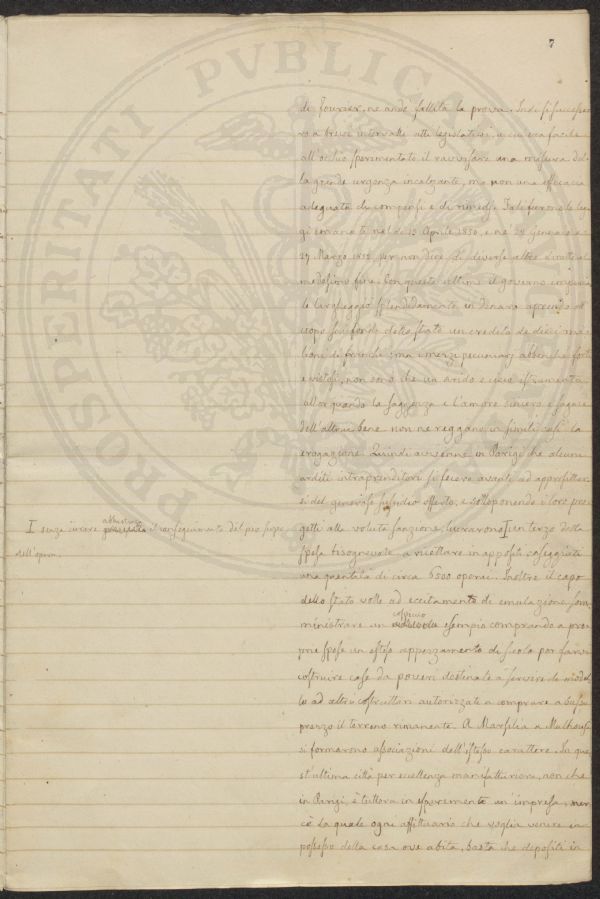 7
di Fourier, ne andò fallita la prova. Indi si succes
ro a brevi intervalli atti legislativi, a cui era facile
all'occhio sperimentato il ravvisare una misura del
la grande urgenza incalzante, ma non una efficacia
adeguata di compensi e di rimedj. Tali furono le leg
gi emanate nel dì 13 Aprile 1850, e nei 22 Gennaio e
27 Marzo 1852 per non dire di diverse altre dirette al
medesimo fine. Con queste ultime il governo imperia
le largheggiò splendidamente in denaro aprendo all'
uopo sui fondi dello stato un credito di dieci mi
lioni di franchi: ma i mezzi pecuniarj abbenchè forti
e vistosi, non sono che un arido e cieco istrumento
allorquando la saggezza e l'amore sincero e sagace
dell'altrui bene non ne reggano in simili casi la
erogazione. Quindi avvenne in Parigi che alcuni
arditi intraprenditori si fecero avanti ad approfittar
si del generoso sussidio offerto, e sottoponendo i loro pro
getti alle volute sanzione, lucrarono I un terzo della
spesa bisognevole a ricettare in appositi caseggiati
una quantità di circa 6500 operai. Inoltre il capo
dello stato volle ad eccitamento di emulazione som
cospicuo
ministrare un esempio comprando a pro
prie spese un esteso appezzamento di suolo per farvi
costruire case da poveri destinate a servire di model
lo ad altri costruttori autorizzati a comprare a basso
prezzo il terreno rimanente. A Marsilia a Mulhouse
si formarono associazioni dell'istesso carattere. In que
st'ultima città per eccellenza manifatturiera, non che
in Parigi, è tuttora in esperimento un'impresa, mer
cè la quale ogni affittuario che voglia venire in
possesso della casa ove abita, basta che depositi in
I senza curare abbastanza il conseguimento del pio scopo
dell'opera.
PROSPERITATI PVBLICAE